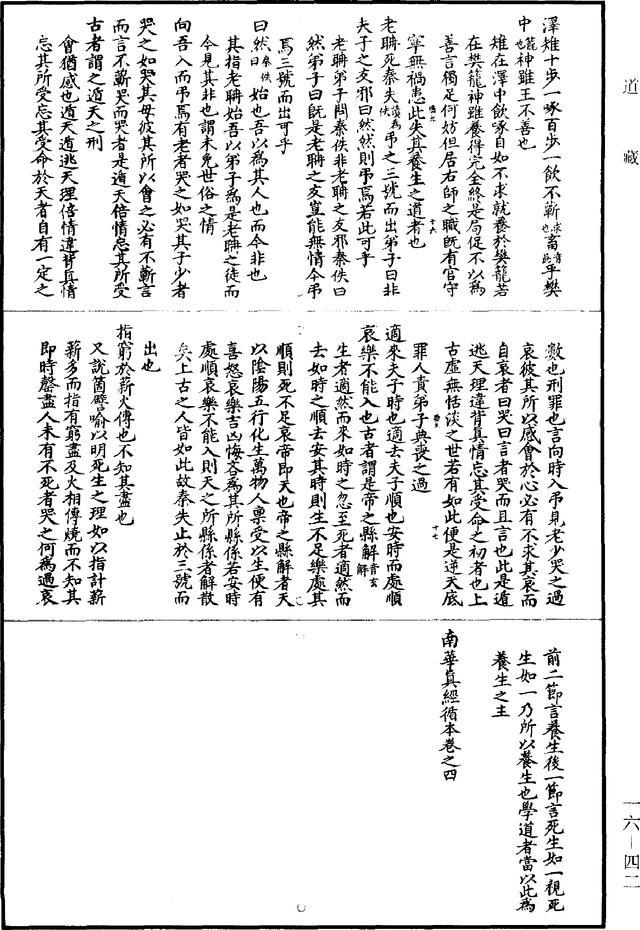 道藏
澤雉十步一啄百步一飲不蘄求音祈也畜乎樊
中籠也神雖王不善也
雉在澤中飲啄自如不求就養於樊籠若
在樊籠神雖養得完全終是局促不以為
善言獨足何妨但居右師之職既有官守
寧無禍患此失其養生之道者也
老聃死秦失佚讀為弔之三號而出弟子曰非
夫子之友邪曰然然則弔焉若此可乎
老聃弟子問秦佚非老聃之友邪秦佚曰
然弟子曰既是老聃之友豈能無情今弔
焉三號而出可乎
曰然秦佚曰始也吾以為其人也而今非也
其指老聃始吾以弟子為是老聃之徒而
今見其非也謂未免世俗之情
向吾入而弔焉有老者哭之如哭其子少者
哭之如哭其母彼其所以會之必有不蘄言
而言不蘄哭而哭者是遁天倍情忘其所受
古者謂之遁天之刑
會猶感也遁天遁逃天理倍情違背真情
忘其所受忘其受命於天者自有一定之
數也刑罪也言向時入弔見老少哭之過
哀彼其所以感會於心必有不求其哀而
自哀者曰哭曰言者哭而且言也此是遁
逃天理違背真情忘其受命之初者也上
古虛無恬淡之世若有如此便是逆天底
罪人責弟子與喪之過
適來夫子時也適去夫子順也安時而處順
哀樂不能入也古者謂是帝之縣解音玄解
生者適然而來如時之忽至死者適然而
去如時之順去安其時則生不足樂處其
順則死不足哀帝即天也帝之縣解者天
以陰陽五行化生萬物人稟受以生便有
喜怒哀樂吉凶悔吝為其所縣係若安時
處順哀樂不能入則天之所縣係者解散
矣上古之人皆如此故秦失止於三號而
出也
指窮於薪火傳也不知其盡也
又說箇譬喻以明死生之理如以指計薪
薪多而指有窮盡及火相傳燒而不知其
即時罄盡人未有不死者哭之何為過哀
前二節言養生後一節言死生如一視死
生如一乃所以養生也學道者當以此為
養生之主
南華真經循本卷之四
一六－四二